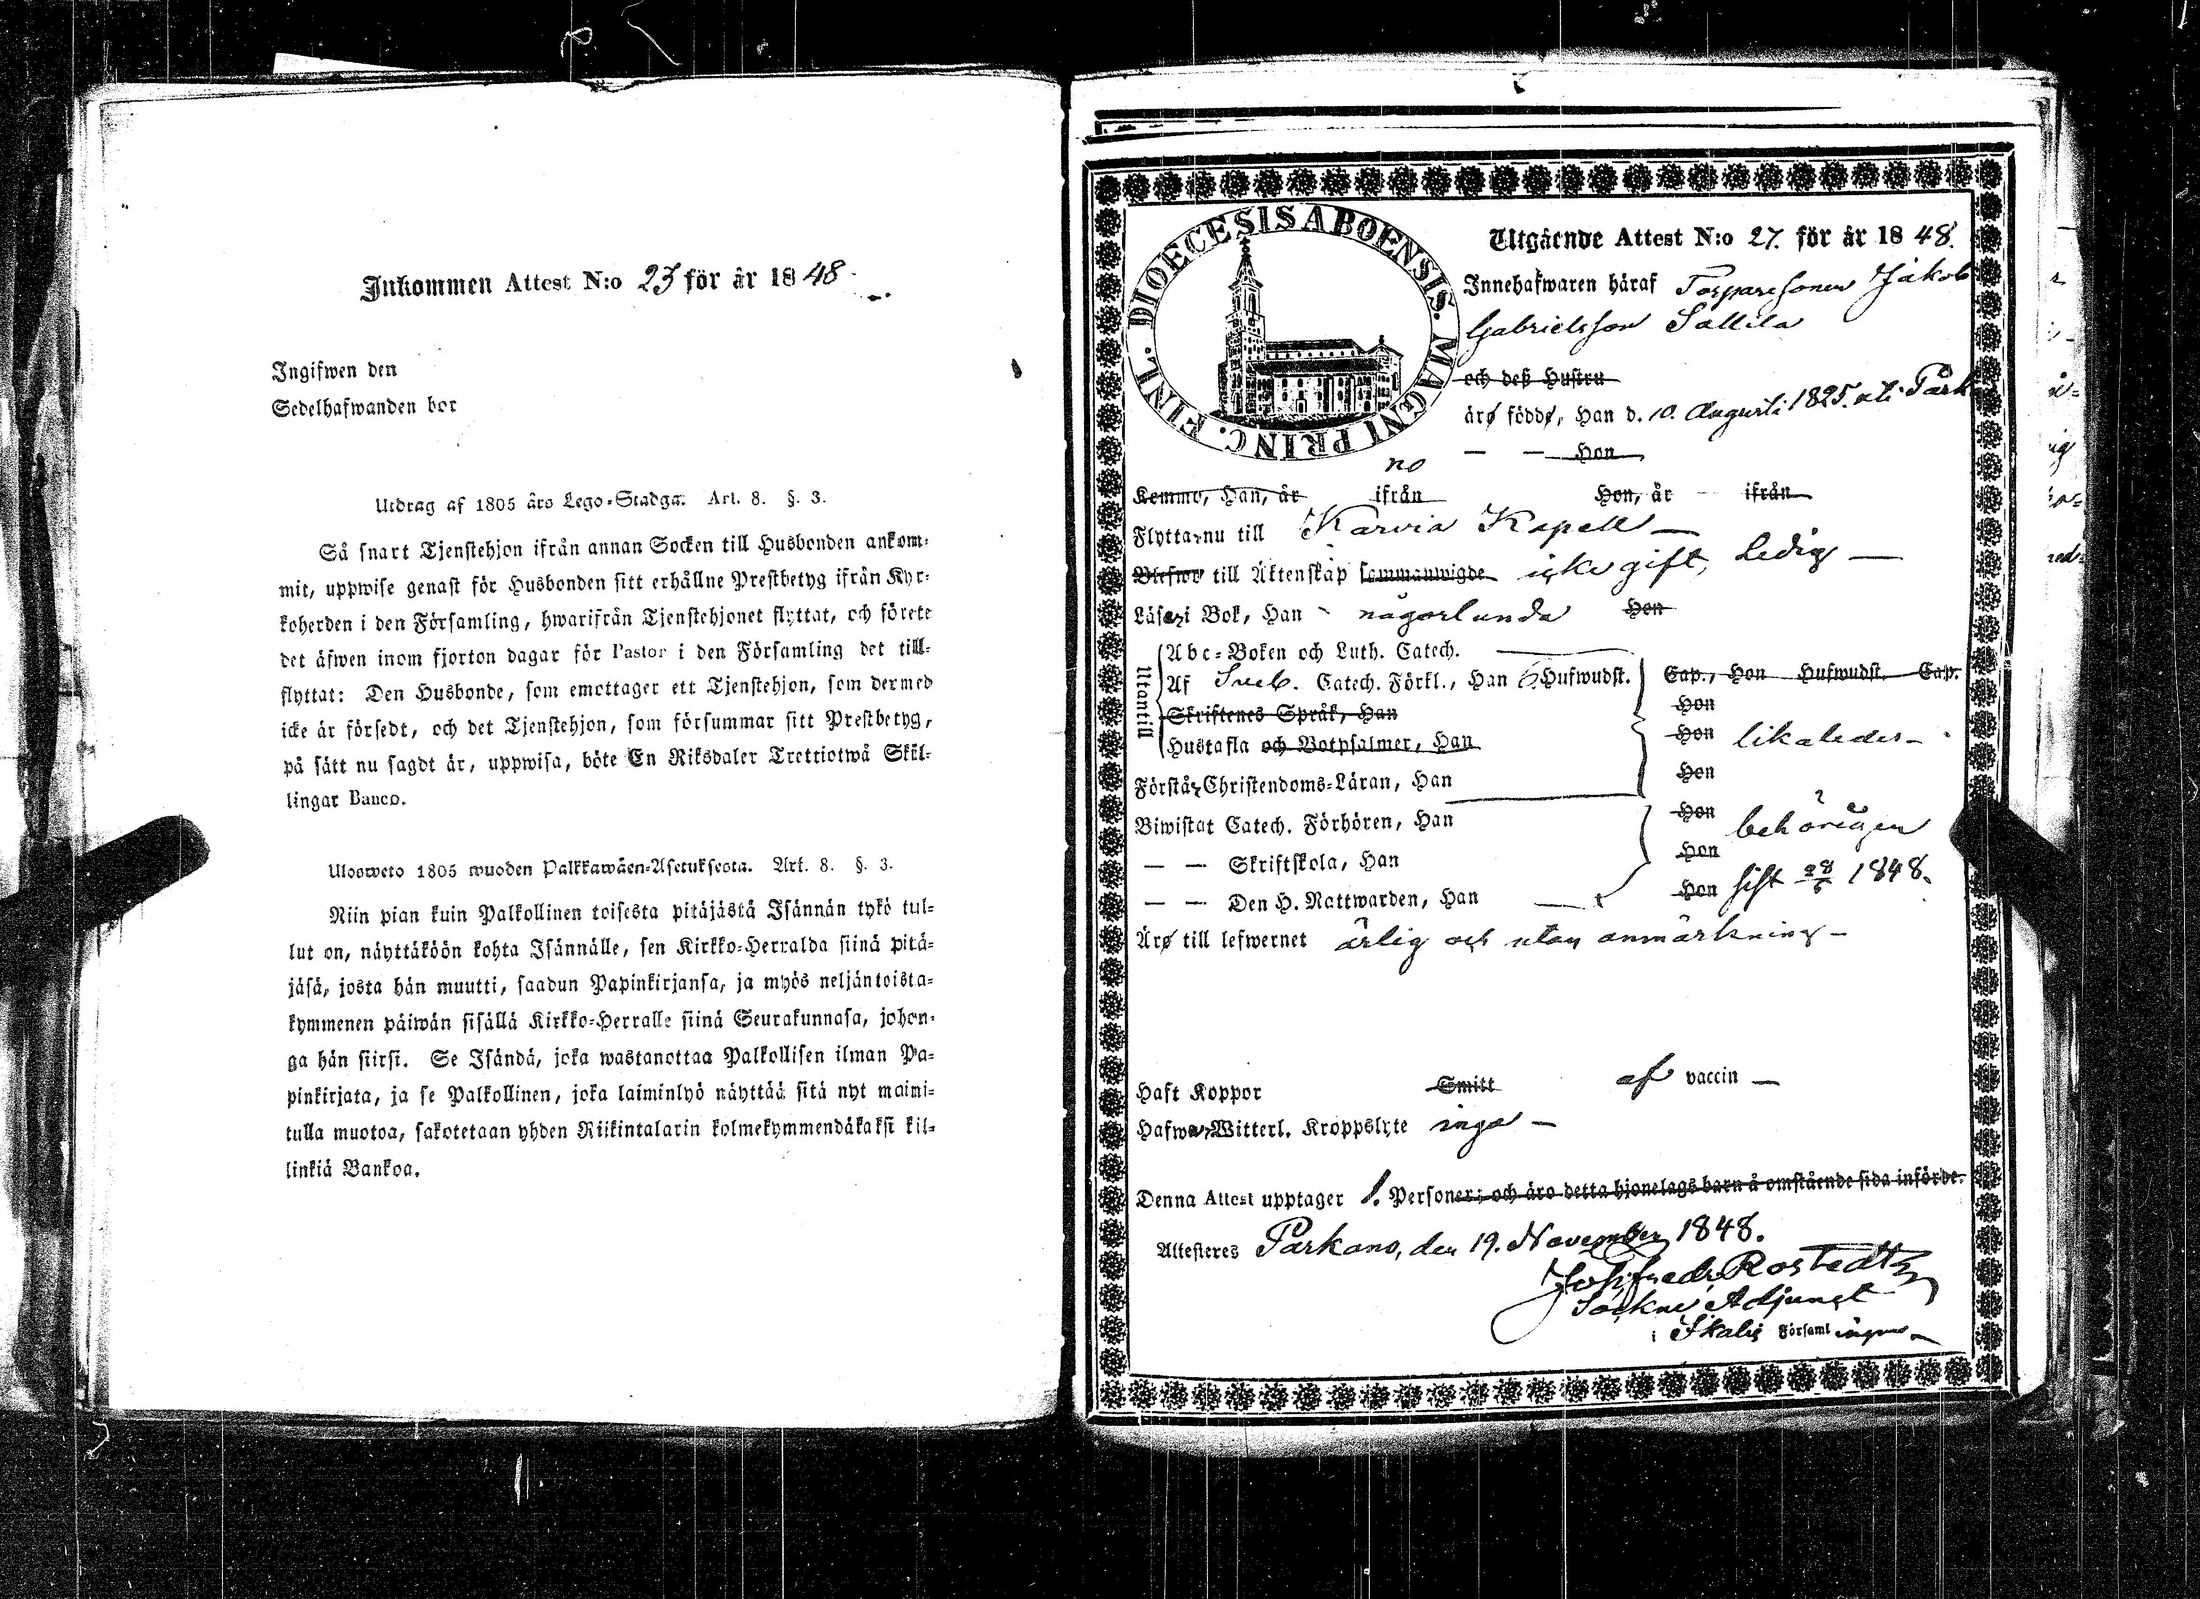 Inkommen Attest N:o 23 för år 1848.
Ingifwen den
Sedelhafwanden bor
Utdrag af 1805 års Lego-Stadga. Art. 8. §. 3.
Så snart Tjenstehjon ifrån annan Socken till Husbonden ankom-
mit, uppwise genast för Husbonden sitt erhållne Prestbetyg ifrån Kyr-
koherden i den Församling, hwarifrån Tjenstehjonet flyttat, och förete
det äfwen inom fjorton dagar för Pastor i den Församling det till-
flyttat: Den Husbonde, som emottager ett Tjenstehjon, som dermed
icke är försedt, och det Tjenstehjon, som försummar sitt Prestbetyg,
på sätt nu sagdt är, uppwisa, böte En Riksdaler Trettiotwå Skil-
lingar Banco.
Ulosweto 1805 wuoden Palkkawäen-Asetuksesta. Art. 8. §. 3.
Niin pian kuin Palkollinen toisesta pitäjästä Isännän tykö tul-
lut on, näyttäköön kohta Isännälle, sen Kirkko-Herralda siinä pitä-
jäsä, josta hän muutti, saadun Papinkirjansa, ja myös neljäntoista-
kymmenen päiwän sisällä Kirkko-Herralle siinä Seurakunnasa, johon-
ga hän siirsi. Se Isändä, joka wastanottaa Palkollisen ilman Pa-
pinkirjata, ja se Palkollinen, joka laiminlyö näyttää sitä nyt maini-
tulla muotoa, sakotetaan yhden Riikintalarin kolmekymmendäkaksi kil-
linkiä Bankoa.
DIOECESIS ABOENSIS. MAGNI PRINC. FINL.
Utgående Attest N:o 27. för år 1848.
Innehafwaren häraf Torparesonen Jakob
Gabrielsson Sallila
och deß Hustru
äro födde, Han d. 10. Augusti 1825. uti Park
no
— — Hon
Kemme, Han, år ifrån Hon, år ifrån
Flytta nu till Karvia Kapell —
Blefwo till Äktenskap sammanwigde icke gift, ledig —
Läsa i Bok, Han någorlunda Hon
Utantill
Abc-Boken och Luth. Catech.
Af Sveb. Catech. Förkl., Han 6 Hufwudst. Cap., Hon Hufwudst. Cap.
Skriftenes Språk, Han Hon
Hustafla och Botpsalmer, Han Hon likaledes —
Förstå Christendoms-Läran, Han Hon
Biwistat Catech. Förhören, Han Hon behörigen
— — Skriftskola, Han Hon
— — Den H. Nattwarden, Han Hon sist 1848.
Äro till lefwernet ärlig och utan anmärkning —
Haft Koppor Smitt af vaccin —
Hafwa Witterl. Kroppslyte inga —
Denna Attest upptager 1. Personer; och äro detta hjonelags barn å omstående sida införde.
Attesteras Parkano, den 19. November 1848.
Joh. Fredr. Rostedt
Sockne Adjunct
i Ikalis Församl ingar —